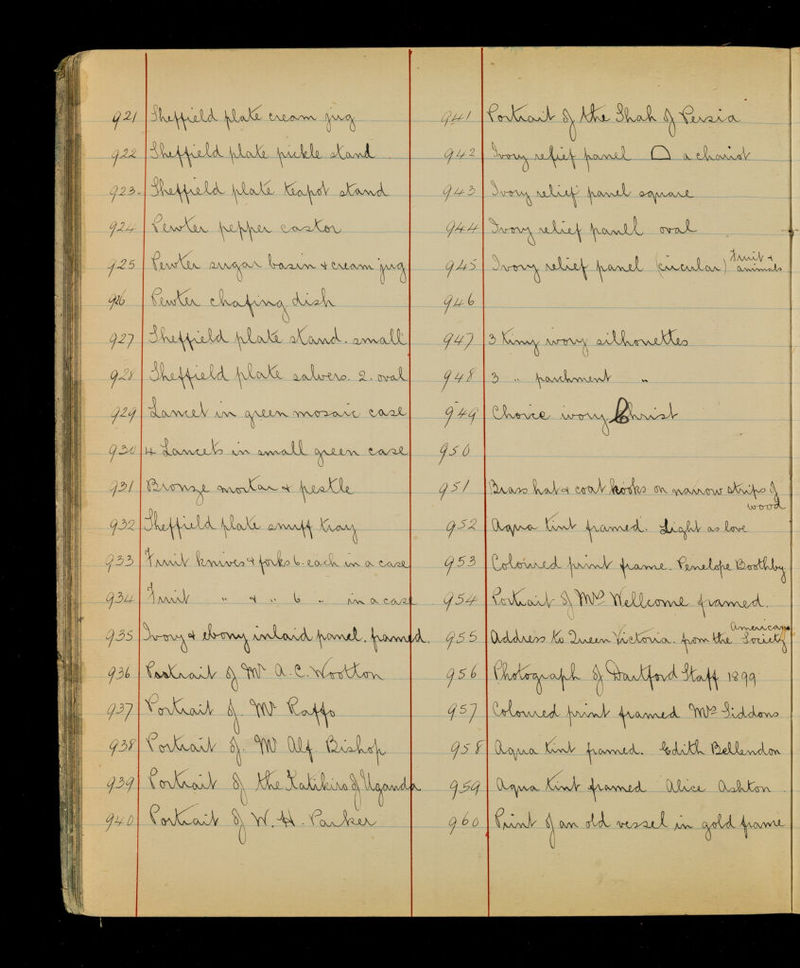 921 Sheffield plate cream jug
922 Sheffield plate pickle stand
923 Sheffield plate teapot stand
924 Pewter pepper castor
925 Pewter sugar basin & cream jug
926 Pewter chafing dish
927 Sheffield plate stand. small
928 Sheffield plate salvers. 2. oval
929 Lancet in green mosaic case
930 4 Lancets in small green case
931 Bronze mortar & pestle
932 Sheffield plate snuff tray
933 Fruit knives & forks 6. each in a case
934 Fruit " & " 6 " in a case
935 Ivory & ebony inlaid panel. framed.
936 Portrait of Mr A. C. Wootton
937 Portrait of. Mr Raffo
938 Portrait of. Mr Alf. Bishop
939 Portrait of the Katikiro of Uganda
940 Portrait of W. H. Parker
941 Portrait of the Shah of Persia
942 Ivory relief panel a chariot
943 Ivory relief panel square
944 Ivory relief panel oval
945 Ivory relief panel (circular) Fruit & animals
946
947 3 tiny ivory silhouettes
948 3 " parchment "
949 Choice ivory Christ
950
951 Brass hat & coat hooks on narrow strips of
wood
952 Aqua tint framed. Light as love
953 Coloured print frame. Penelope Boothby
954 Portrait of Mrs Wellcome framed.
955 Address to Queen Victoria. from the American Society
956 Photograph of Dartford Staff 1899
957 Coloured print framed Mrs Siddons
958 Aqua tint framed. Edith Bellendon
959 Aqua tint framed Alice Ashton
960 Print of an old vessel in gold frame